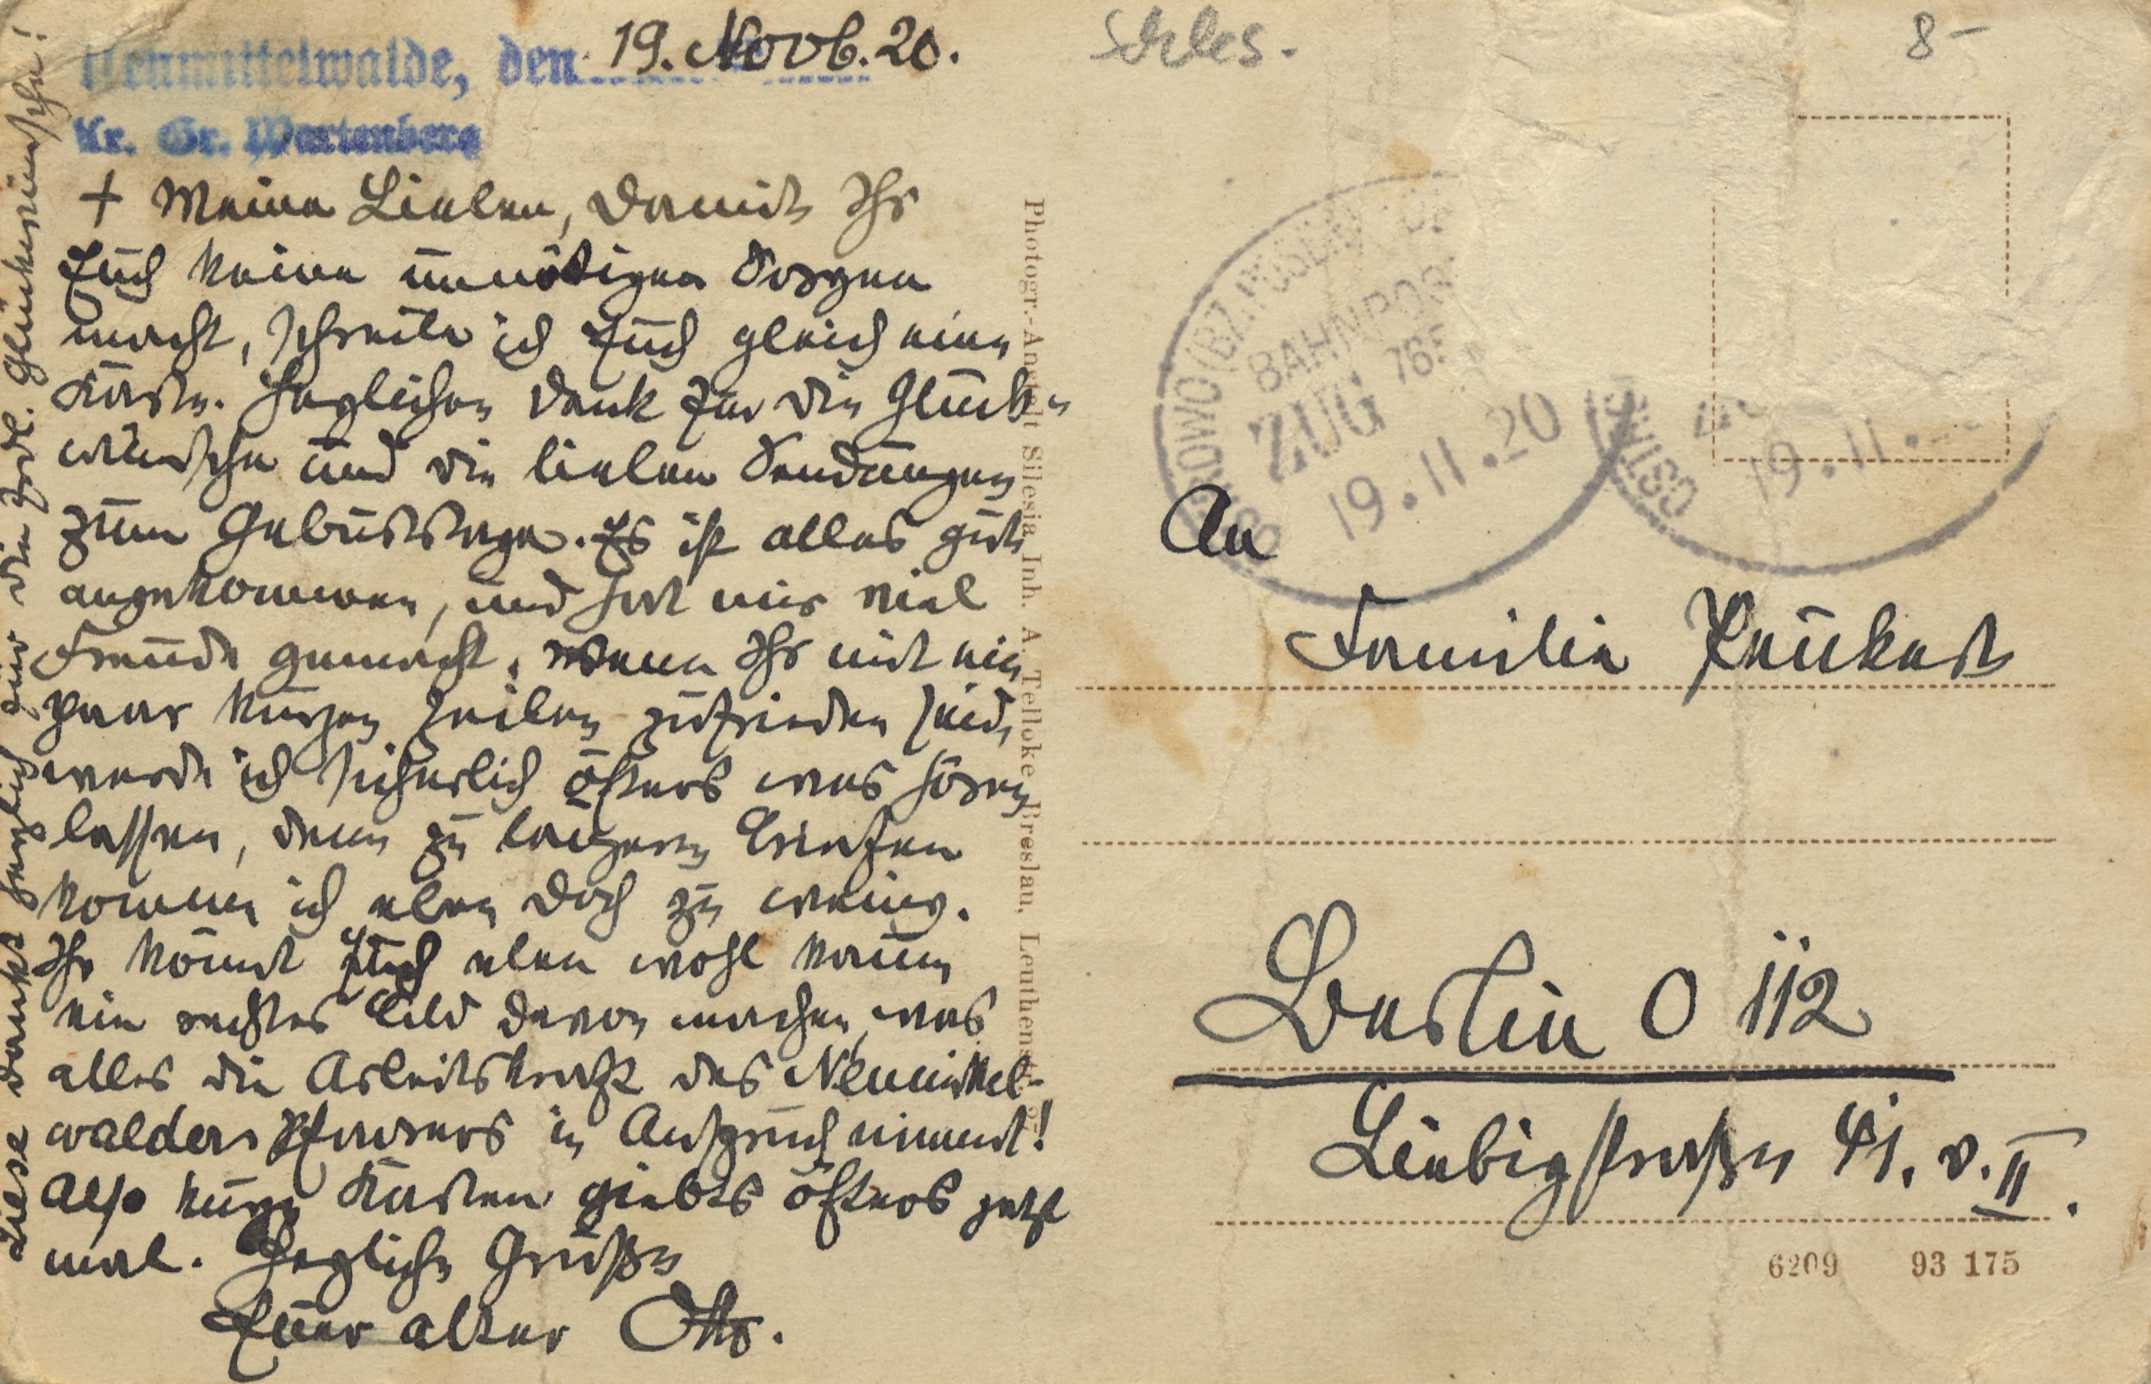 Neumittelwalde, den 19. Novb. 20.
Kr. Gr. Wartenberg
+ Meine Lieben, damit Ihr
Euch keine unnötigen Sorgen
macht, schreibe ich Euch gleich eine
Karte. Herzlichen Dank für die Glück-
wünsche und die lieben Sendungen
zum Geburtstage. Es ist alles gut
angekommen, und hat mir viel
Freude gemacht. Wenn Ihr mit ein
paar kurzen Zeilen zufrieden seid,
werde ich sicherlich öfters was hören
lassen, denn zu längeren Briefen
komme ich eben doch zu wenig.
Ihr könnt Euch eben wohl kaum
ein rechtes Bild davon machen, was
alles die Arbeitskraft des Neumittel-
walder Pfarrers in Anspruch nimmt!
Also kurze Karten giebts öfters jetzt
mal. Herzliche Grüße
Euer alter Otto.
Liese dankt herzlich für die frdl. Glückwünsche!
Photogr.-Anstalt Silesia Inh. A. Telloke, Breslau, Leuthenstr.
Schles.
8-
BAHNPOST
ZUG 765
19.11.20
OSTROWO
19.11.
An
Familie Peukert
Berlin O 112
Liebigstraße 41. v. II.
6209 93 175